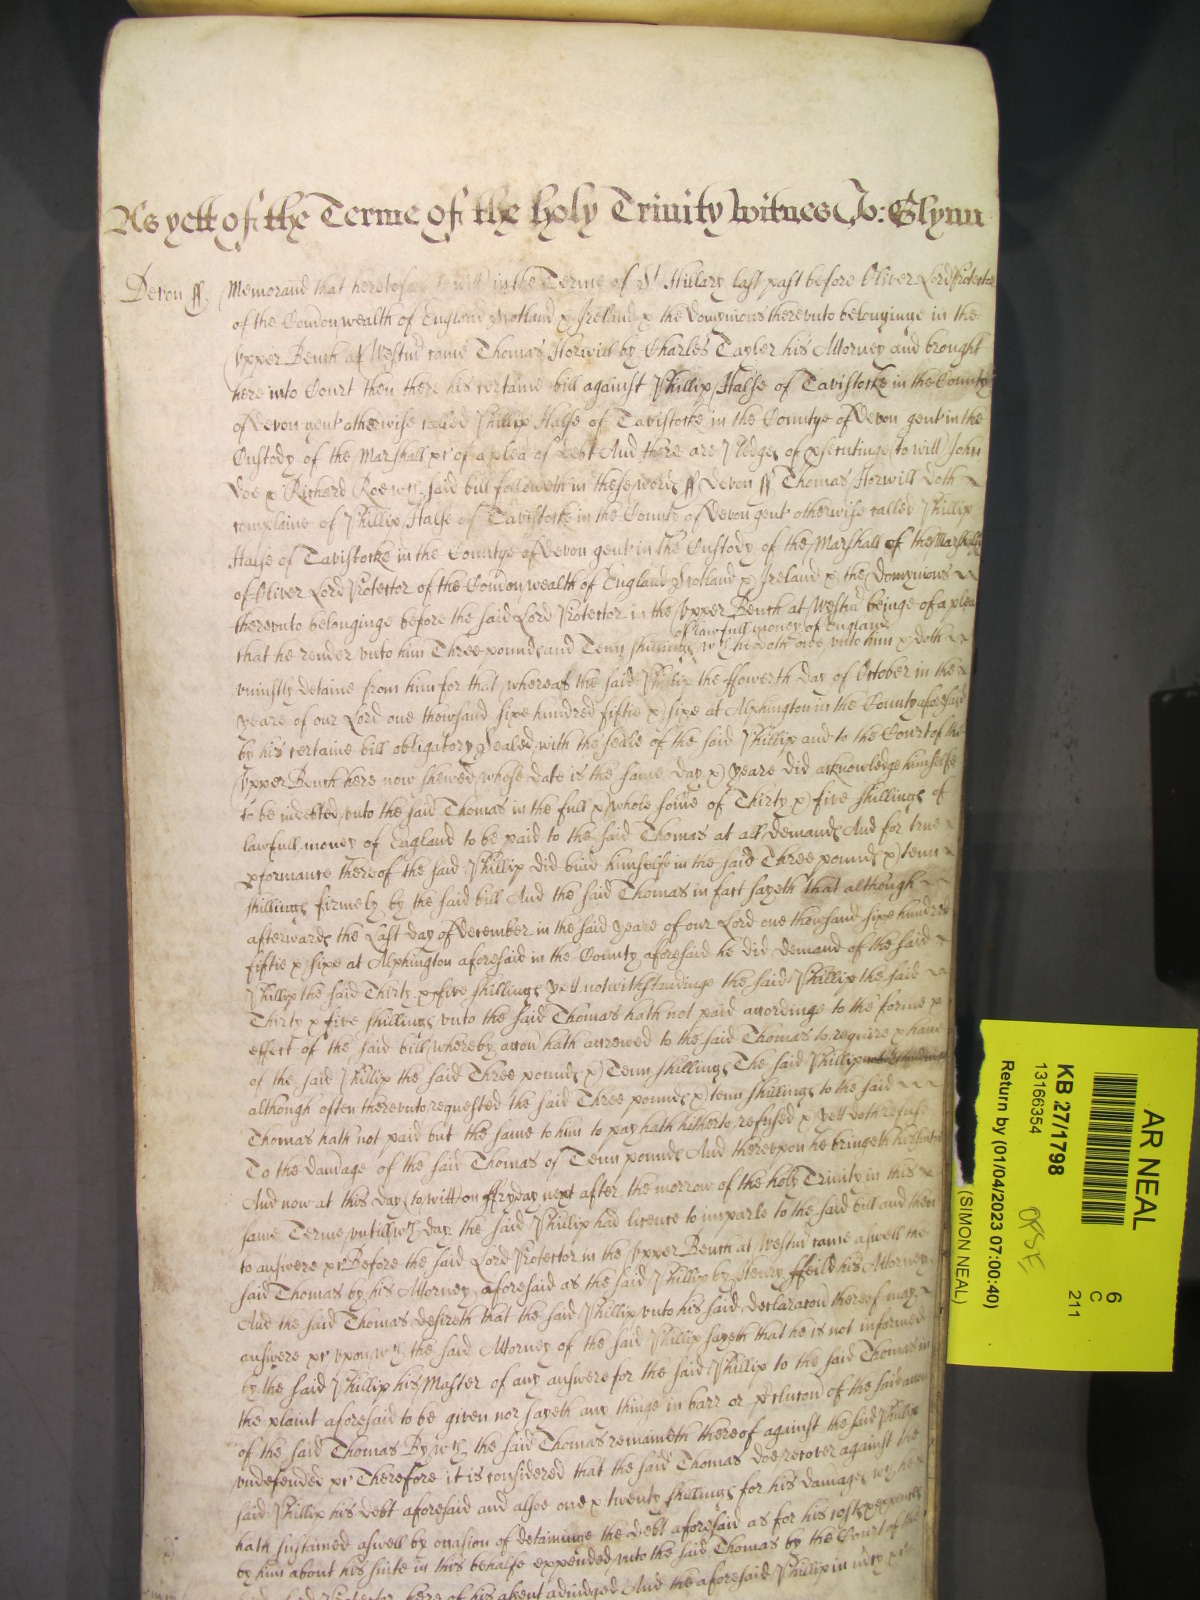 As yett of the Terme of the holy Trinity Witnes Jo: Glynn
Devon ss. Memorand that heretofore to witt in the Terme of St Hillary last past before Oliver Lord Protector
of the Comon wealth of England Scotland & Ireland & the dominions therevnto belonginge in the
vpper Bench at Westmr came Thomas Horwill by Charles Tayler his Attorney and brought
here into Court then there his certaine bill against Phillip Halse of Tavistocke in the County
of Devon gent otherwise called Phillip Halse of Tavistocke in the Countye of Devon gent in the
Custody of the Marshall &c of a plea of debt And there are Pledges of psecutinge to witt John
Doe & Richard Roe wch said bill followeth in these words ss Devon ss Thomas Horwill doth
complaine of Phillip Halse of Tavistocke in the County of Devon gent otherwise called Phillip
Halse of Tavistocke in the Countye of Devon gent in the Custody of the Marshall of the Marshalsey
of Oliver Lord Protector of the Comon wealth of England Scotland & Ireland & the dominions
therevnto belonginge before the said Lord Protector in the vpper Bench at Westmr beinge of a plea
of lawfull money of England
that he render vnto him Three pounds and Tenn shillings wch he doth owe vnto him & doth
viniustly detaine from him for that whereas the said Phillip the ffowerth day of October in the
yeare of our Lord one thowsand sixe hundred fiftie & sixe at Alphington in the County aforesaid
by his certaine bill obligatory Sealed with the seale of the said Phillip and to the Court of the
vpper Bench here now shewed whose date is the same day & yeare did acknowledge himselfe
to be indebted vnto the said Thomas in the full & whole some of Thirty & five shillings of
lawfull money of England to be paid to the said Thomas at all demands And for true
pformance thereof the said Phillip did bind himselfe in the said Three pounds & tenn
shillings firmely by the said bill And the said Thomas in fact sayeth that although
afterwards the Last day of December in the said yeare of our Lord one thousand sixe hundred
fiftie & sixe at Alphington aforesaid in the County aforesaid he did demand of the said
Phillip the said Thirty & five shillings yett notwithstandinge the said Phillip the said
Thirty & five shillings vnto the said Thomas hath not paid accordinge to the forme &
effect of the said bill whereby accon hath accrewed to the said Thomas to require & have
of the said Phillip the said Three pounds & Tenn shillings The said Phillip
although often therevnto requested the said Three pounds & tenn shillings to the said
Thomas hath not paid but the same to him to pay hath hitherto refused & yett doth refuse
To the damage of the said Thomas of Tenn pounds And therevpon he bringeth his suite
And now at this day to witt on ffryday next after the morrow of the holy Trinity in this
same Terme vntill wch day the said Phillip had licence to imparle to the said bill and then
to answere &c Before the said Lord Protector in the vpper Bench at Westmr came aswell the
said Thomas by his Attorney aforesaid as the said Phillip by Henry ffeild his Attorney
And the said Thomas desireth that the said Phillip vnto his said declaracon thereof may
answere &c vpon wch the said Attorney of the said Phillip sayeth that he is not informed
by the said Phillip his Master of any answere for the said Phillip to the said Thomas in
the plaint aforesaid to be given nor sayeth any thinge in barr or pclucon of the said accon
of the said Thomas By wch the said Thomas remaineth thereof against the said Phillip
vndefended &c Therefore it is considered that the said Thomas doe recover against the
said Phillip his Debt aforesaid and alsoe one & twenty shillings for his damages wch he
hath sustained aswell by occasion of detaininge the debt aforesaid as for his costs & expences
by him about his suite in this behalfe expended vnto the said Thomas by the Court of the
said Lord Protector here of his assent adiudged And the aforesaid Phillip in mercy &c
AR NEAL
KB 27/1798
13166354
Return by (01/04/2023 07:00:40)
(SIMON NEAL)
6
C
211